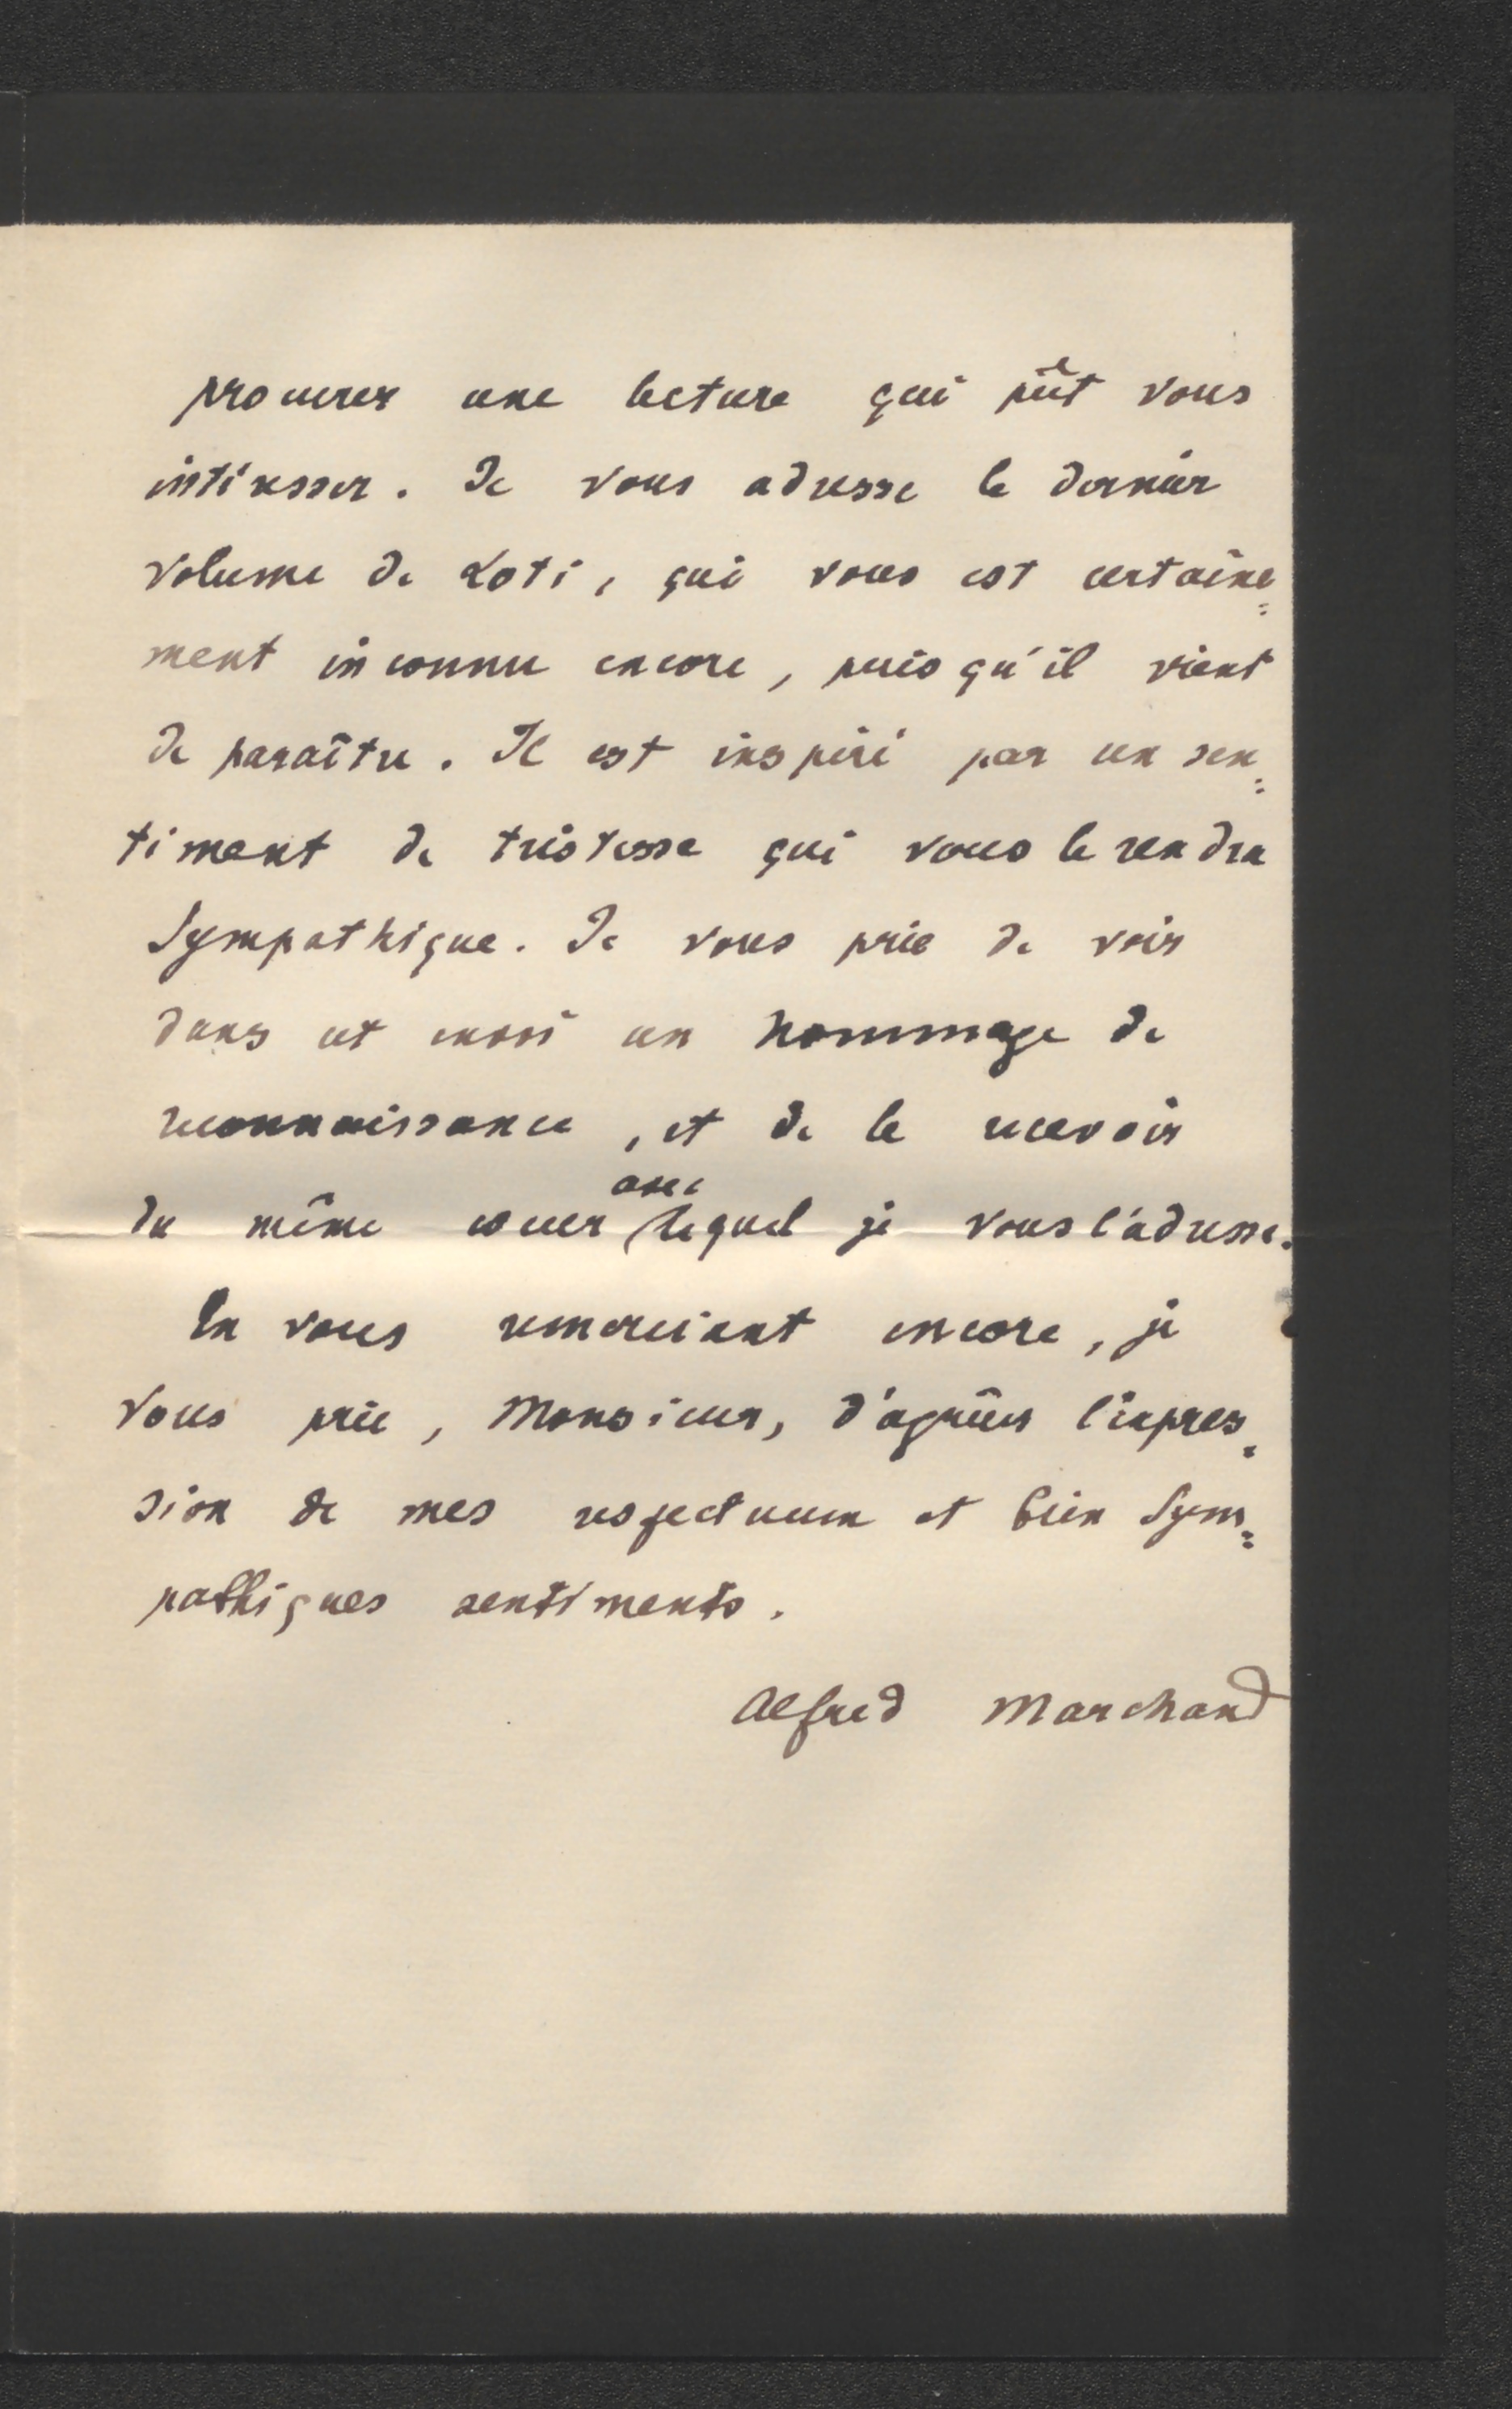 procurer une lecture qui pût vous
intéresser. Je vous adresse le dernier
volume de Loti, qui vous est certaine=
ment inconnu encore, puisqu'il vient
de paraître. Il est inspiré par un sen=
timent de tristesse qui vous le rendra
sympathique. Je vous prie de voir
dans cet envoi un hommage de
reconnaissance, et de le recevoir
du même coeur avec lequel je vous l'adresse.
En vous remerciant encore, je
vous prie, Monsieur, d'agréer l'expres=
sion de mes respectueux et bien sym=
pathiques sentiments.
Alfred Marchand